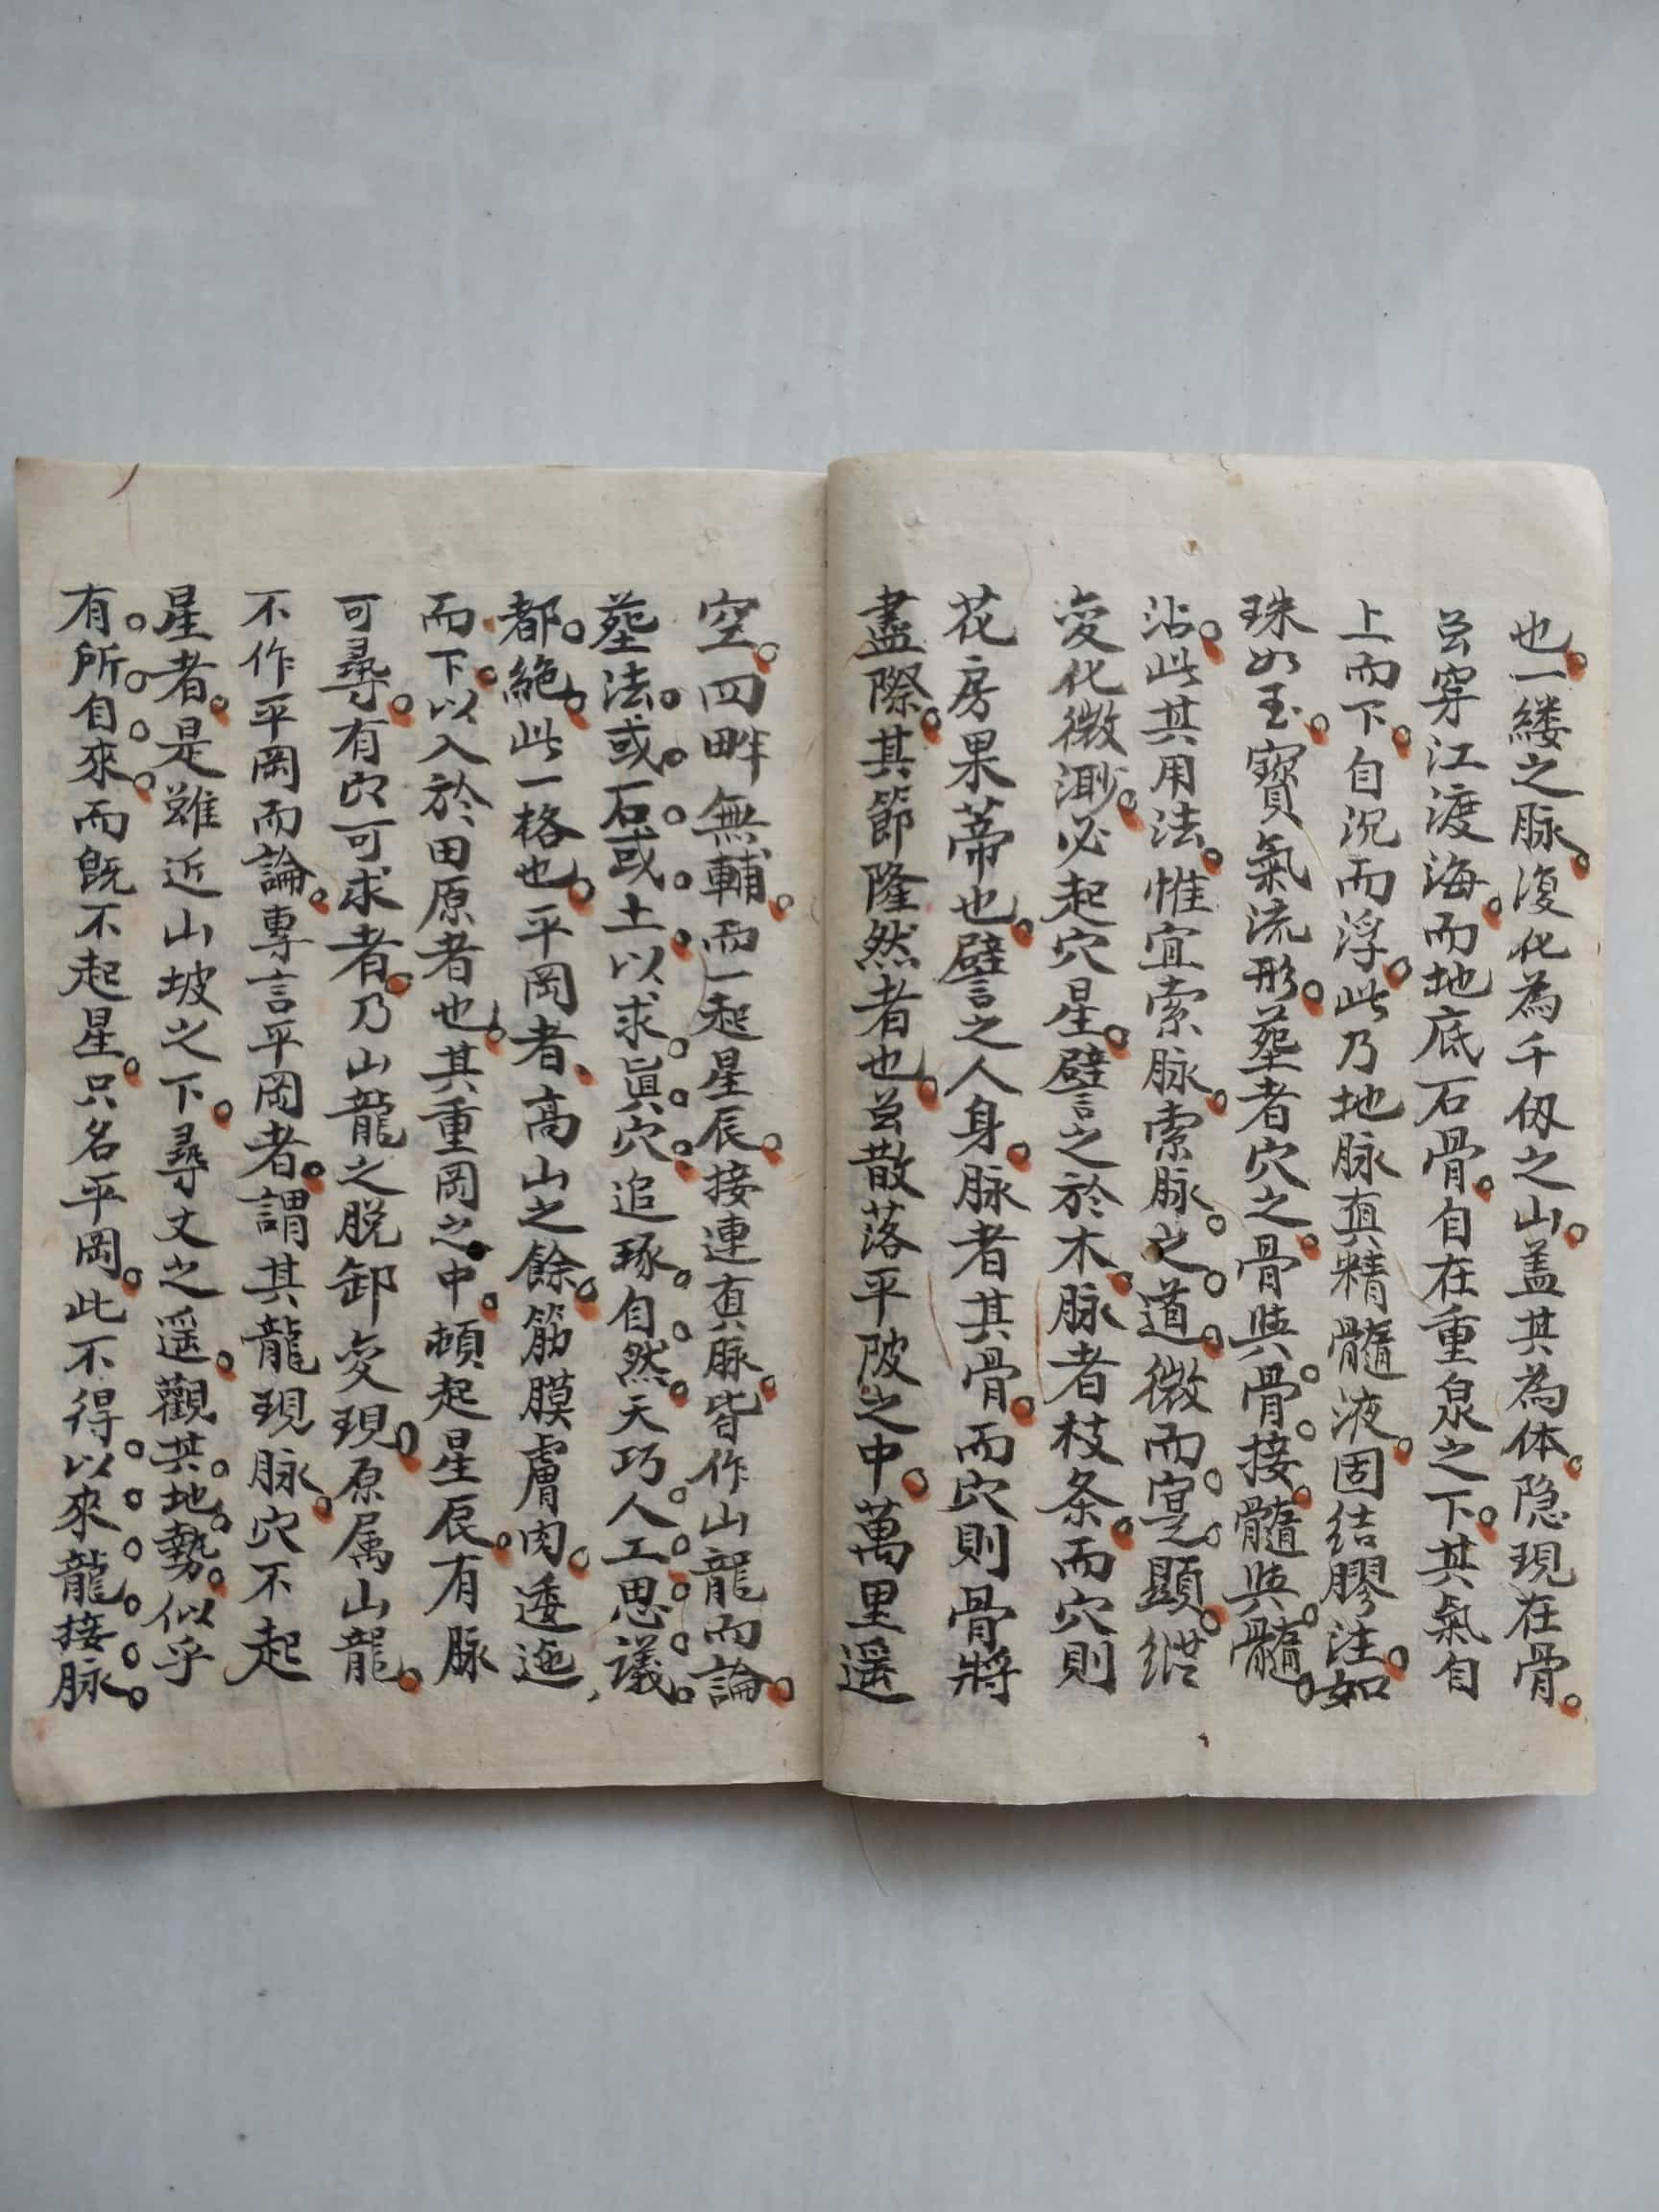 也。一缕之脉。復化為千仭之山。盖其為体。隐現在骨。
穿江渡海。而地底石骨。自在重泉之下。其氣自
上而下。自沉而浮。此乃地脉真精髓液。固結膠注。如
珠如玉。寶氣流形。塟者穴之。骨與骨。接髓與髓。
沾。此其用法。惟宜索脉。索脉。之道。微而寔。顯。縱
变化微渺。必起穴星。譬之於木。脉者枝条。而穴則
花房果蒂也。譬之人身。脉者其骨。而穴則骨將
盡際。其節隆然者也。散落平陂之中。萬里遥
空。四畔無輔。而一起星辰。接連真脉。皆作山龍而論。
塟法。或。石。或。土。以求。眞。穴。追琢。自。然。天巧。人。工。思。議。
都。絶。此一格也。平岡者、高山之餘。筋膜膚肉。逶迤、
而下。以入於田原者也。其重岡之中。頓起星辰。有脉
可尋。有穴可求者。乃山龍之脱卸变現。原属山龍。
不作平岡而論。專言平岡者。謂其龍現脉。穴不起
星者。是雖近山坡之下。尋丈之遥。觀其。地。勢。似乎
有。所。自。來。而既不起星。只名平岡。此不得。以。來。龍。接。脉。